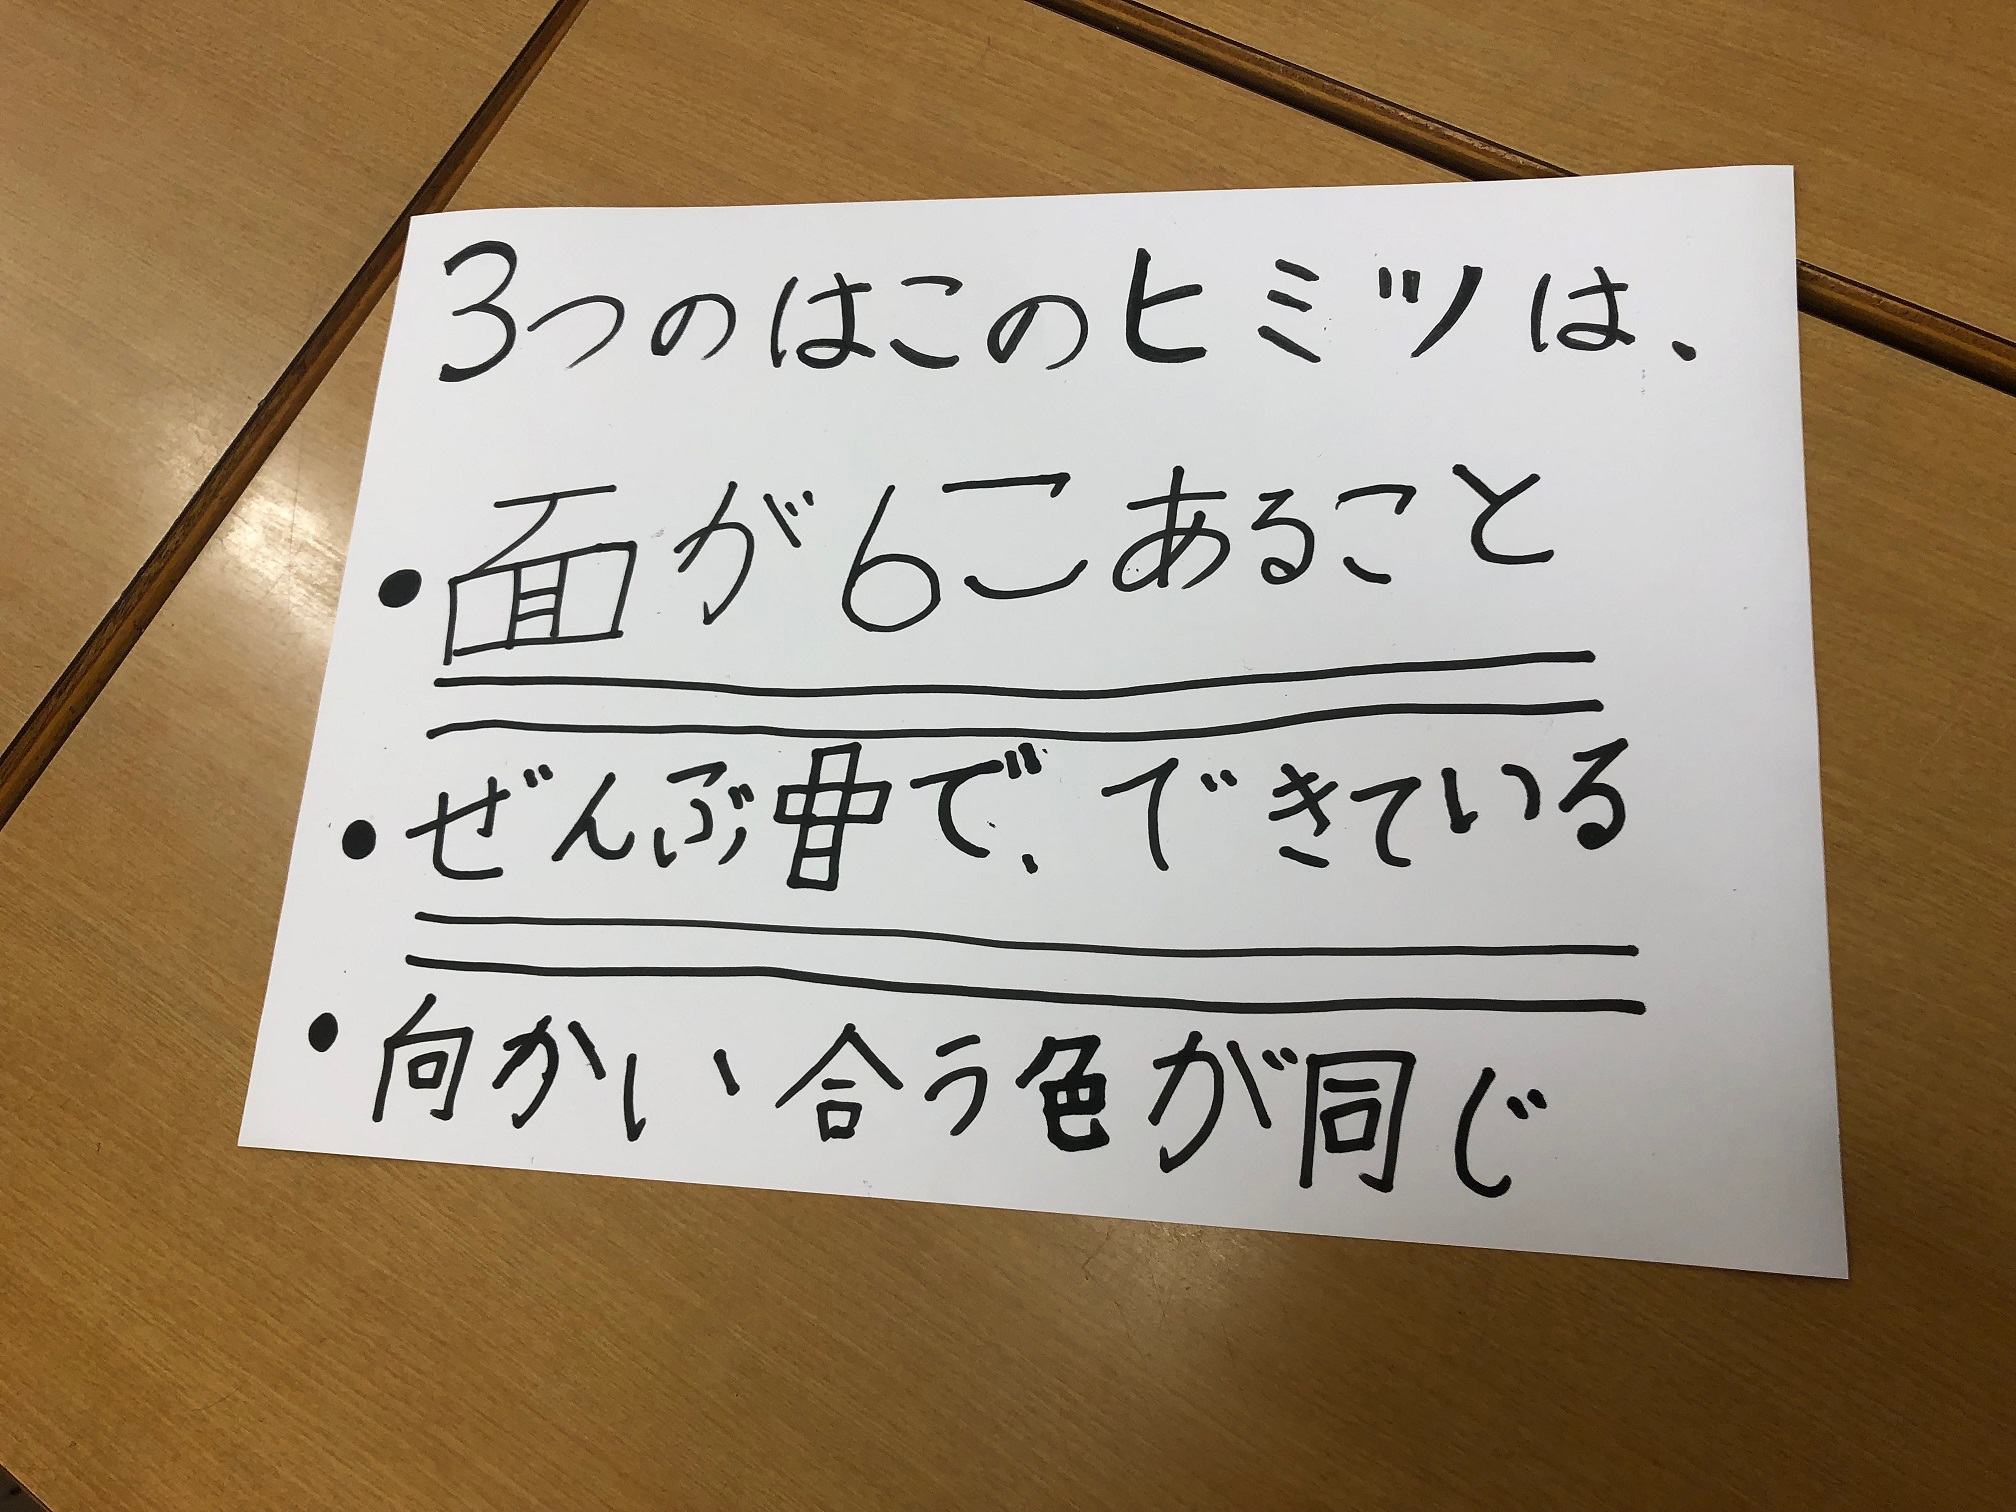 3つのはこのヒミツは、
・面が6こあること
・ぜんぶで、できている
・向かい合う色が同じ